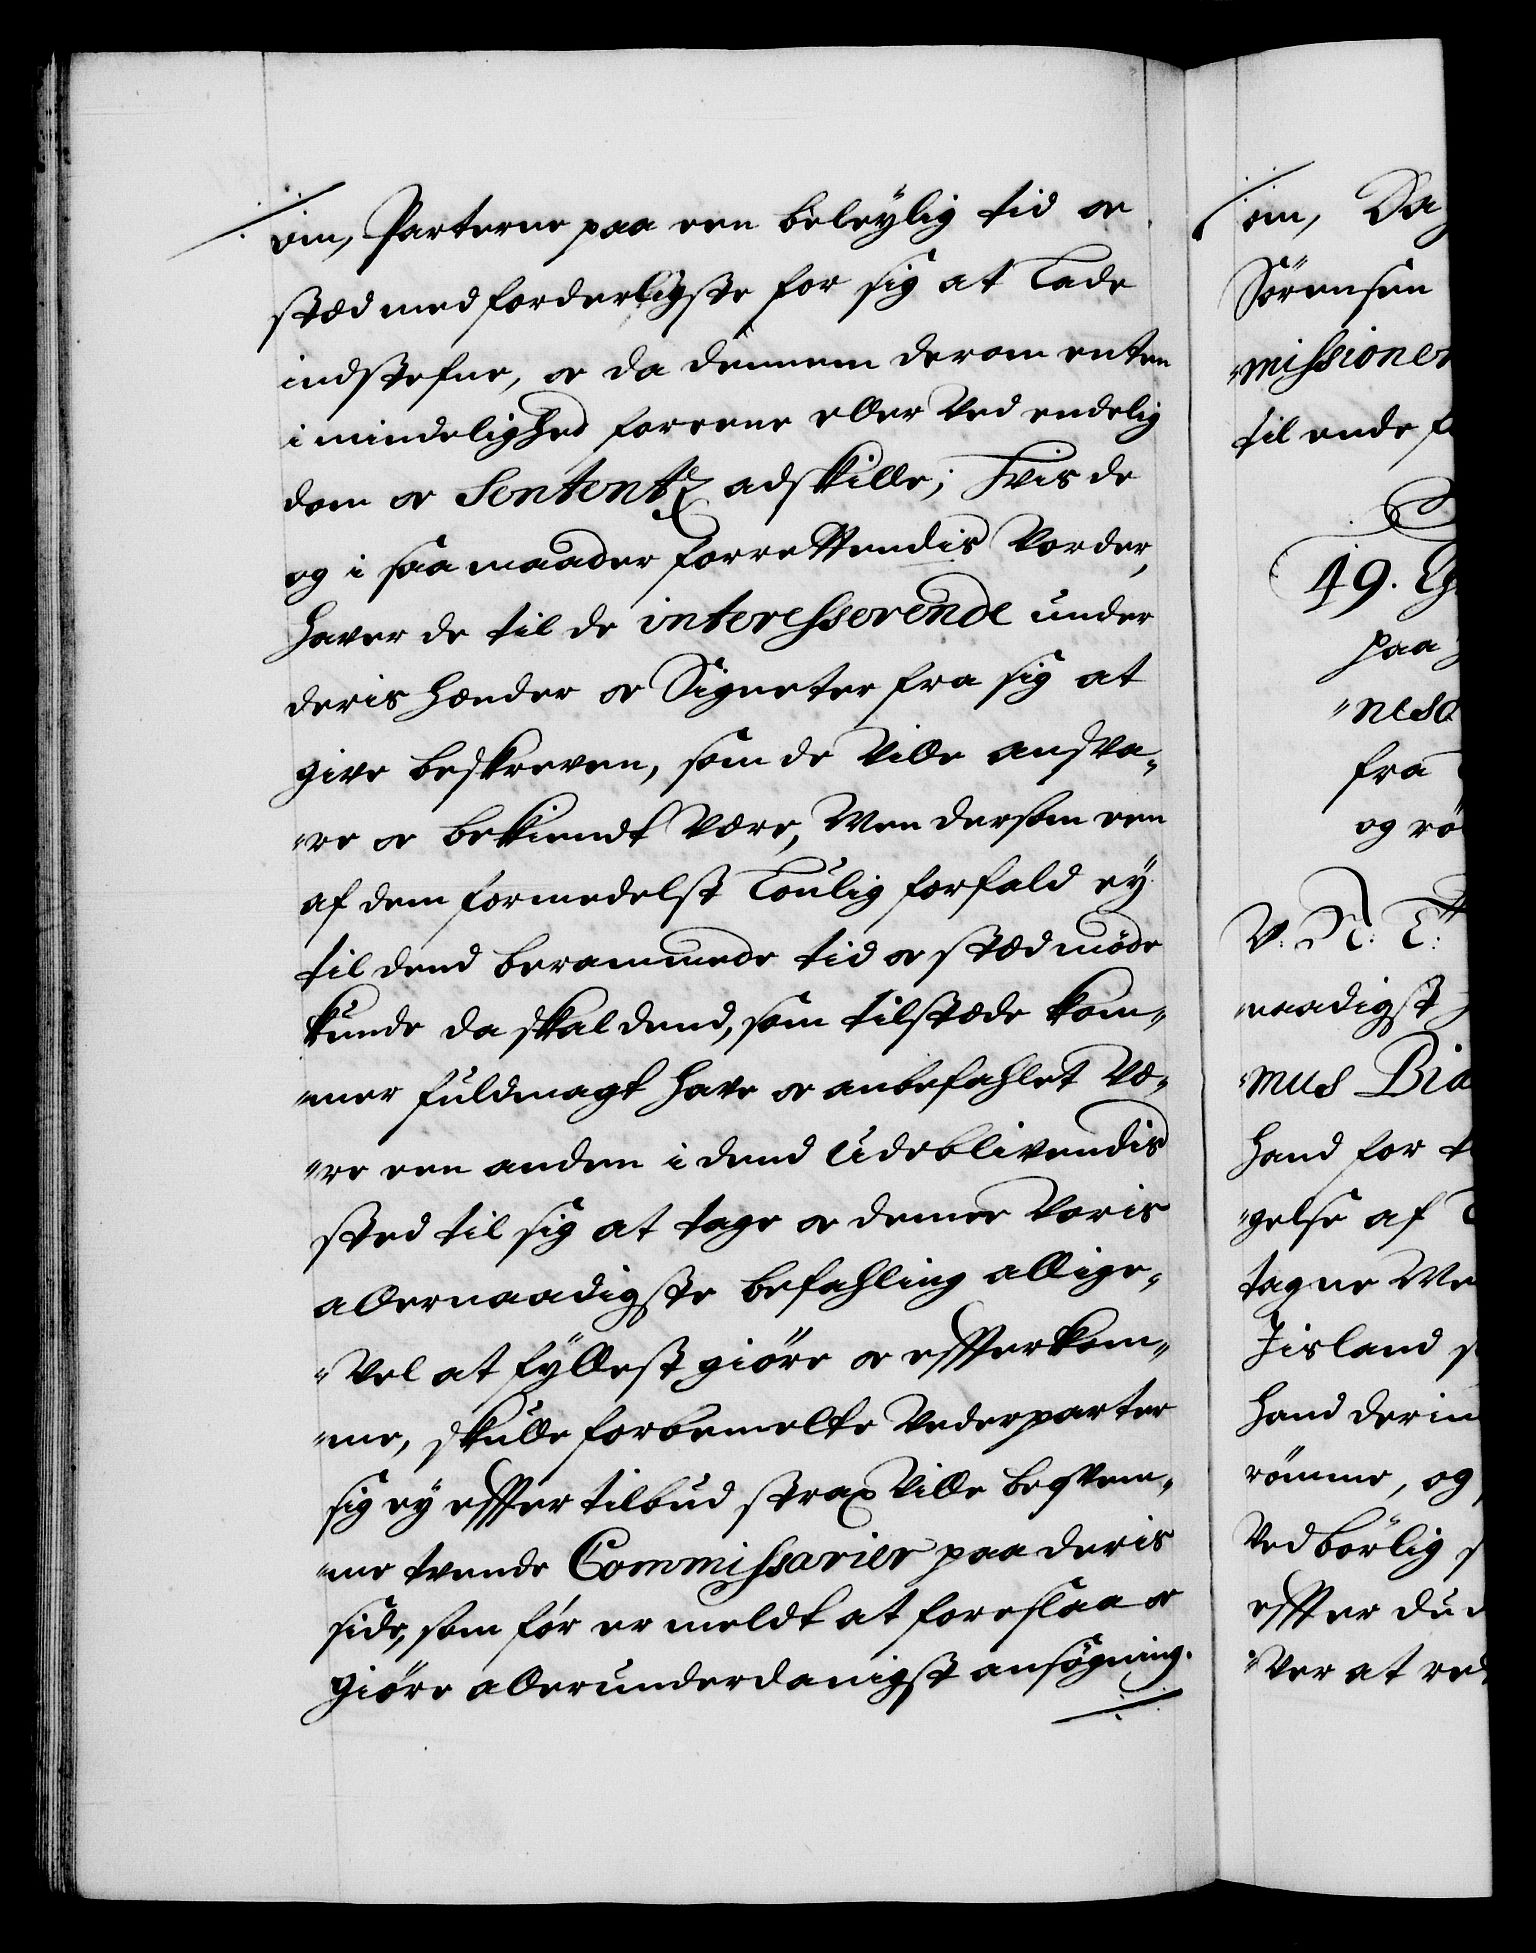 om, Parterne paa een beleÿlig tid oc
stæd med forderligste for sig at Lade
indstefne, oc da dennem derom enten
i mindelighed foreene eller Ved endelig
dom oc Sententz adskille; Hvis de
og i saa maader forrettendis Vorder,
haver de til de interesserende under
deris Hænder oc Signeter fra sig at
give beskreven, som de Ville andsva-
re oc bekiendt Være, Men dersom een
af dem formedelst Loulig forfald eÿ
til dend berammede tid oc stæd møde
kunde da skal dend, som tilstæde kom-
mer fuldmagt have oc anbefahlet Væ-
re een anden i dend Udeblivendis
sted til sig at tage oc denne Voris
allernaadigste befahling allige-
Vel at fÿllest giøre oc effterkom-
me, skulle forbemelte Vederparter
sig eÿ effter tilbud strax Ville beqVem-
me tvende Commissarier paa deris
side, som før er meldt at foreslaa oc
giøre allerunderdanigst ansøgning.
om, Da
Sørensen
missioner
til ende
49.
paa
fra
og rö
V: A: T:
naadigst
mus Bia
hand for
gelse af
tagne
Jisland
hand der
rømme, og
Vedbörlig
effter du
Ver at